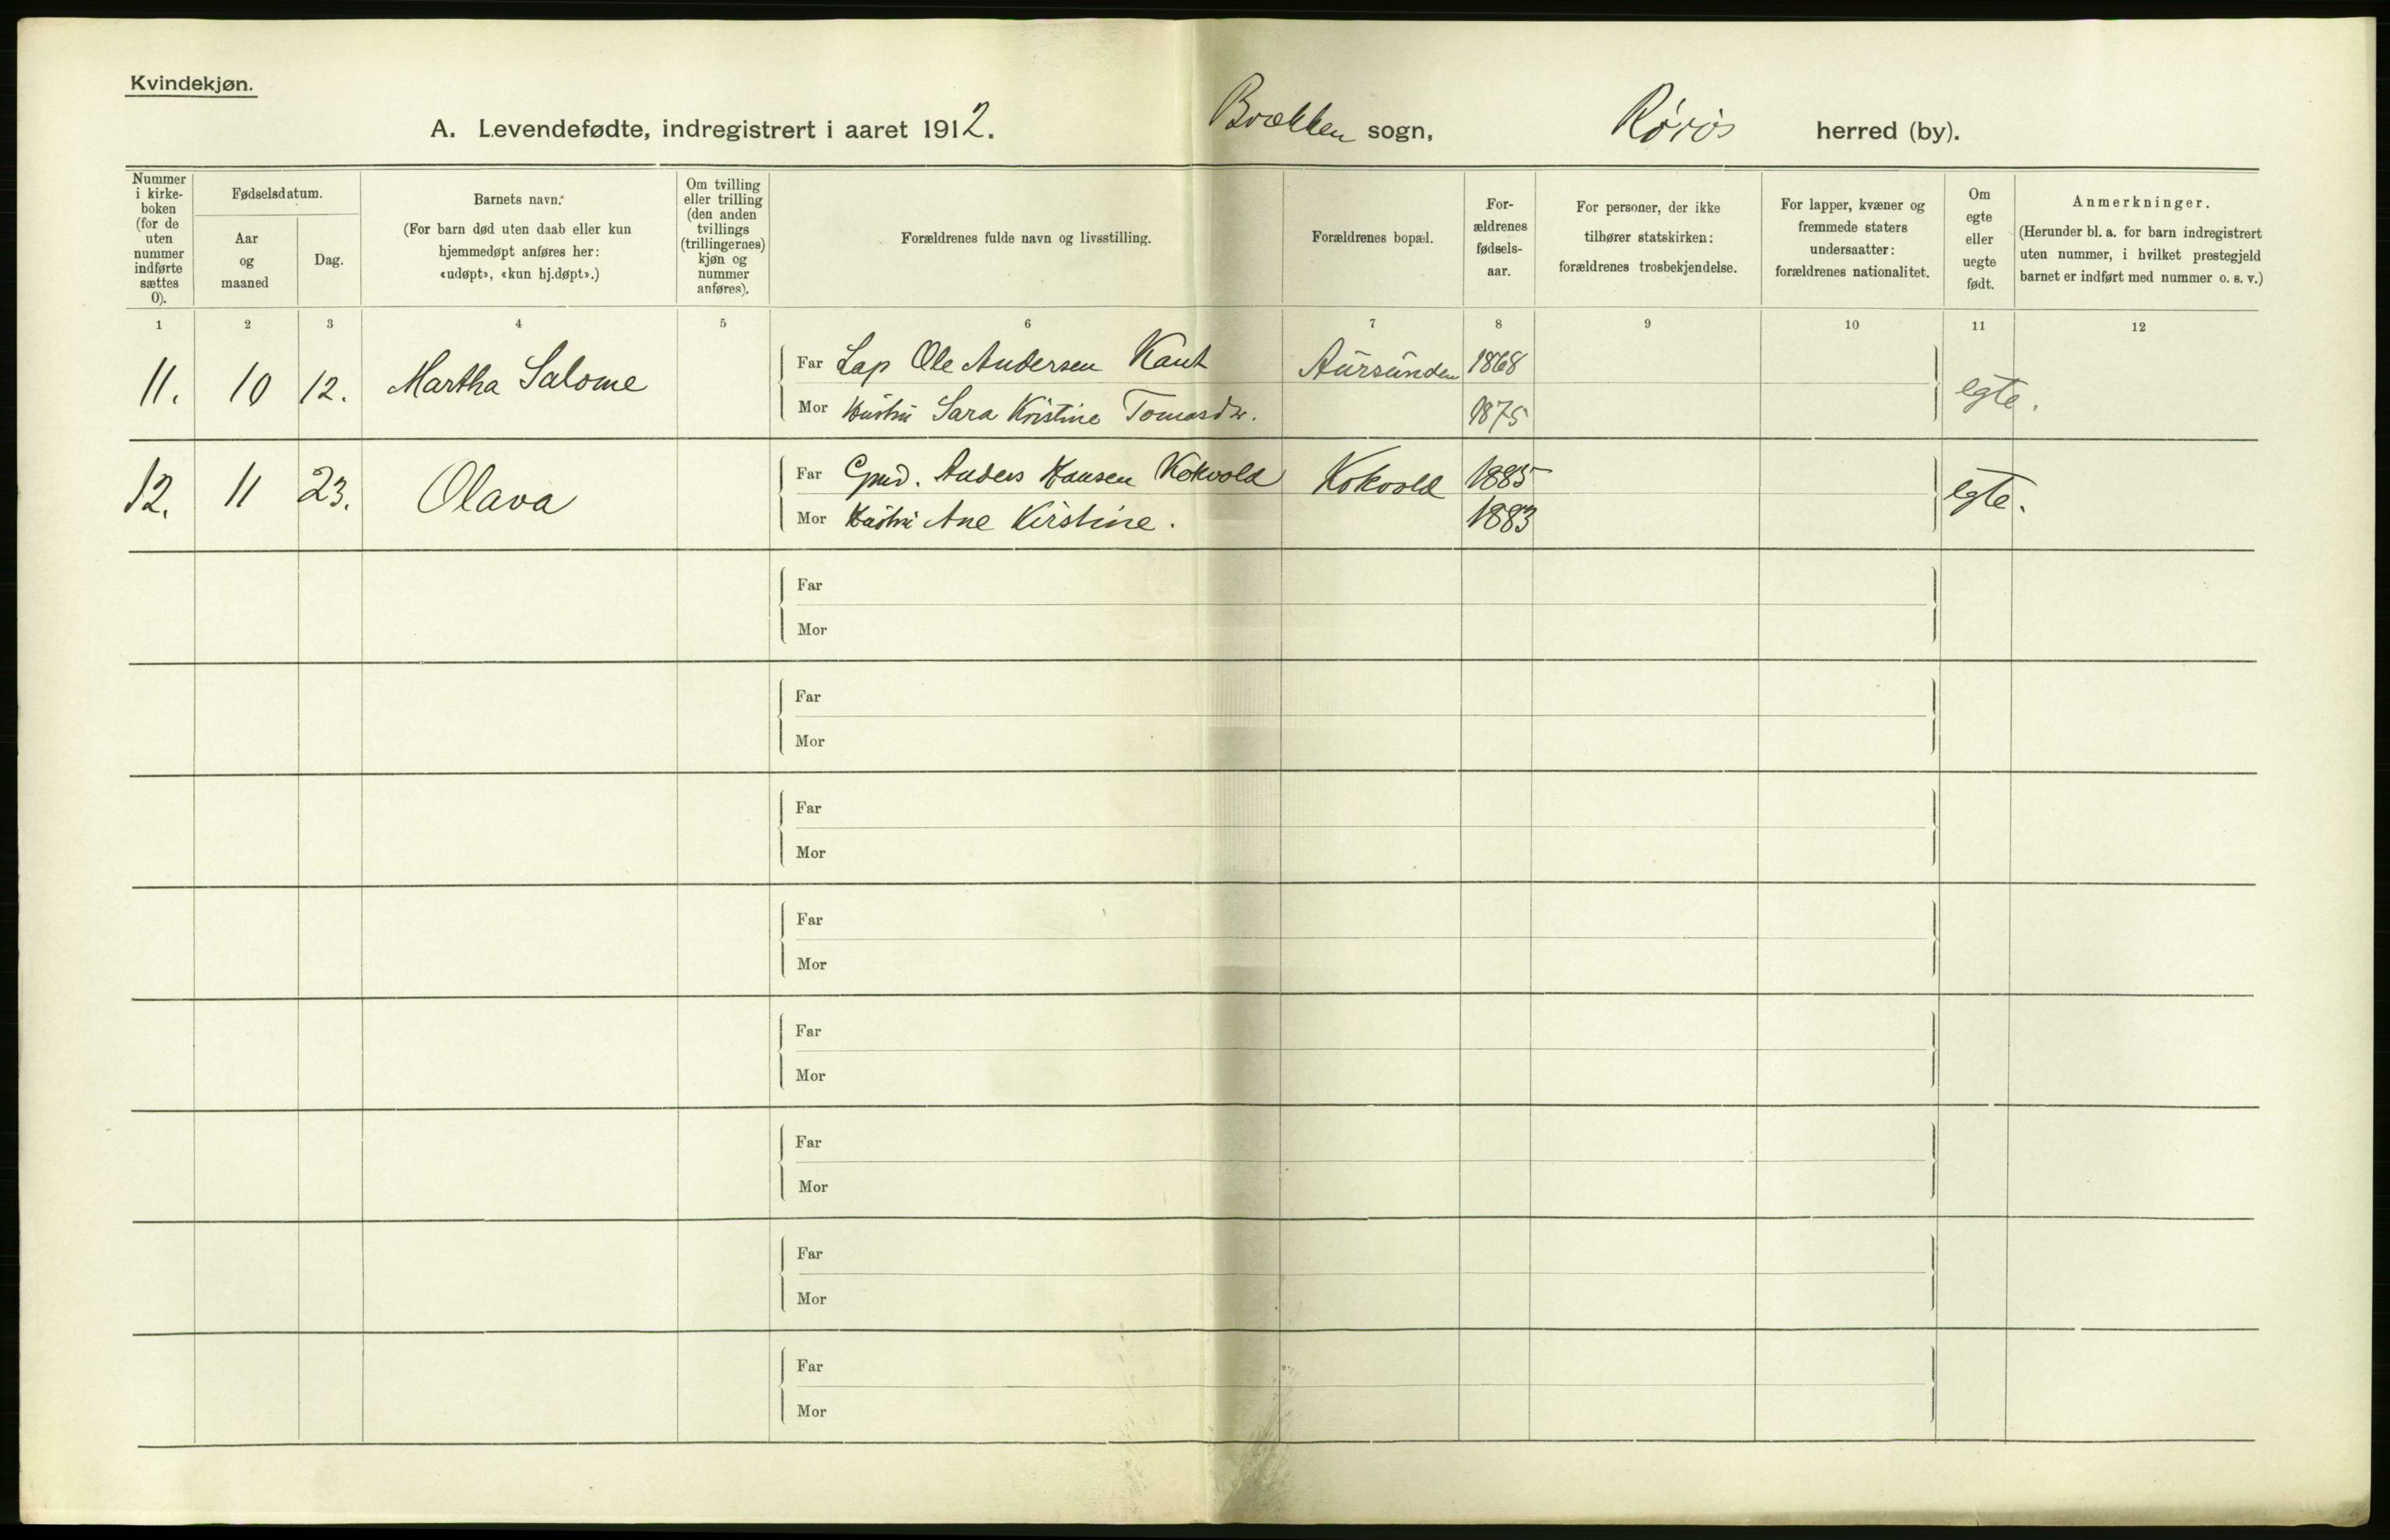 Kvindekjøn.
A. Levendefødte, indregistrert i aaret 1912.
Brækken sogn,
Røros
herred (by).
Nummer
i kirke-
boken
(for de
uten
nummer
indførte
sættes
0).
Fødselsdatum.
Aar
og
maaned
Dag.
Barnets navn.
(For barn død uten daab eller kun
hjemmedøpt anføres her:
«udøpt», «kun hj.døpt».)
Om tvilling
eller trilling
(den anden
tvillings
(trillingernes)
kjøn og
nummer
anføres).
Forældrenes fulde navn og livsstilling.
Forældrenes bopæl.
For-
ældrenes
fødsels-
aar.
For personer, der ikke
tilhører statskirken:
forældrenes trosbekjendelse.
For lapper, kvæner og
fremmede staters
undersaatter:
forældrenes nationalitet.
Om
egte
eller
uegte
født.
Anmerkninger.
(Herunder bl. a. for barn indregistrert
uten nummer, i hvilket prestegjeld
barnet er indført med nummer o. s. v.)
1 2 3 4 5 6 7 8 9 10 11 12
11. 10 12. Martha Salome
Far Lap Ole Andersen Kant Aursunden 1868
Mor Hustru Sara Kristine Tomasdtr. 1875
egte.
12. 11 23. Olava
Far Gmd. Anders Hansen Kokvold Kokvold 1885
Mor Hustru Ane Kirstine. 1883
egte.
Far
Mor
Far
Mor
Far
Mor
Far
Mor
Far
Mor
Far
Mor
Far
Mor
Far
Mor